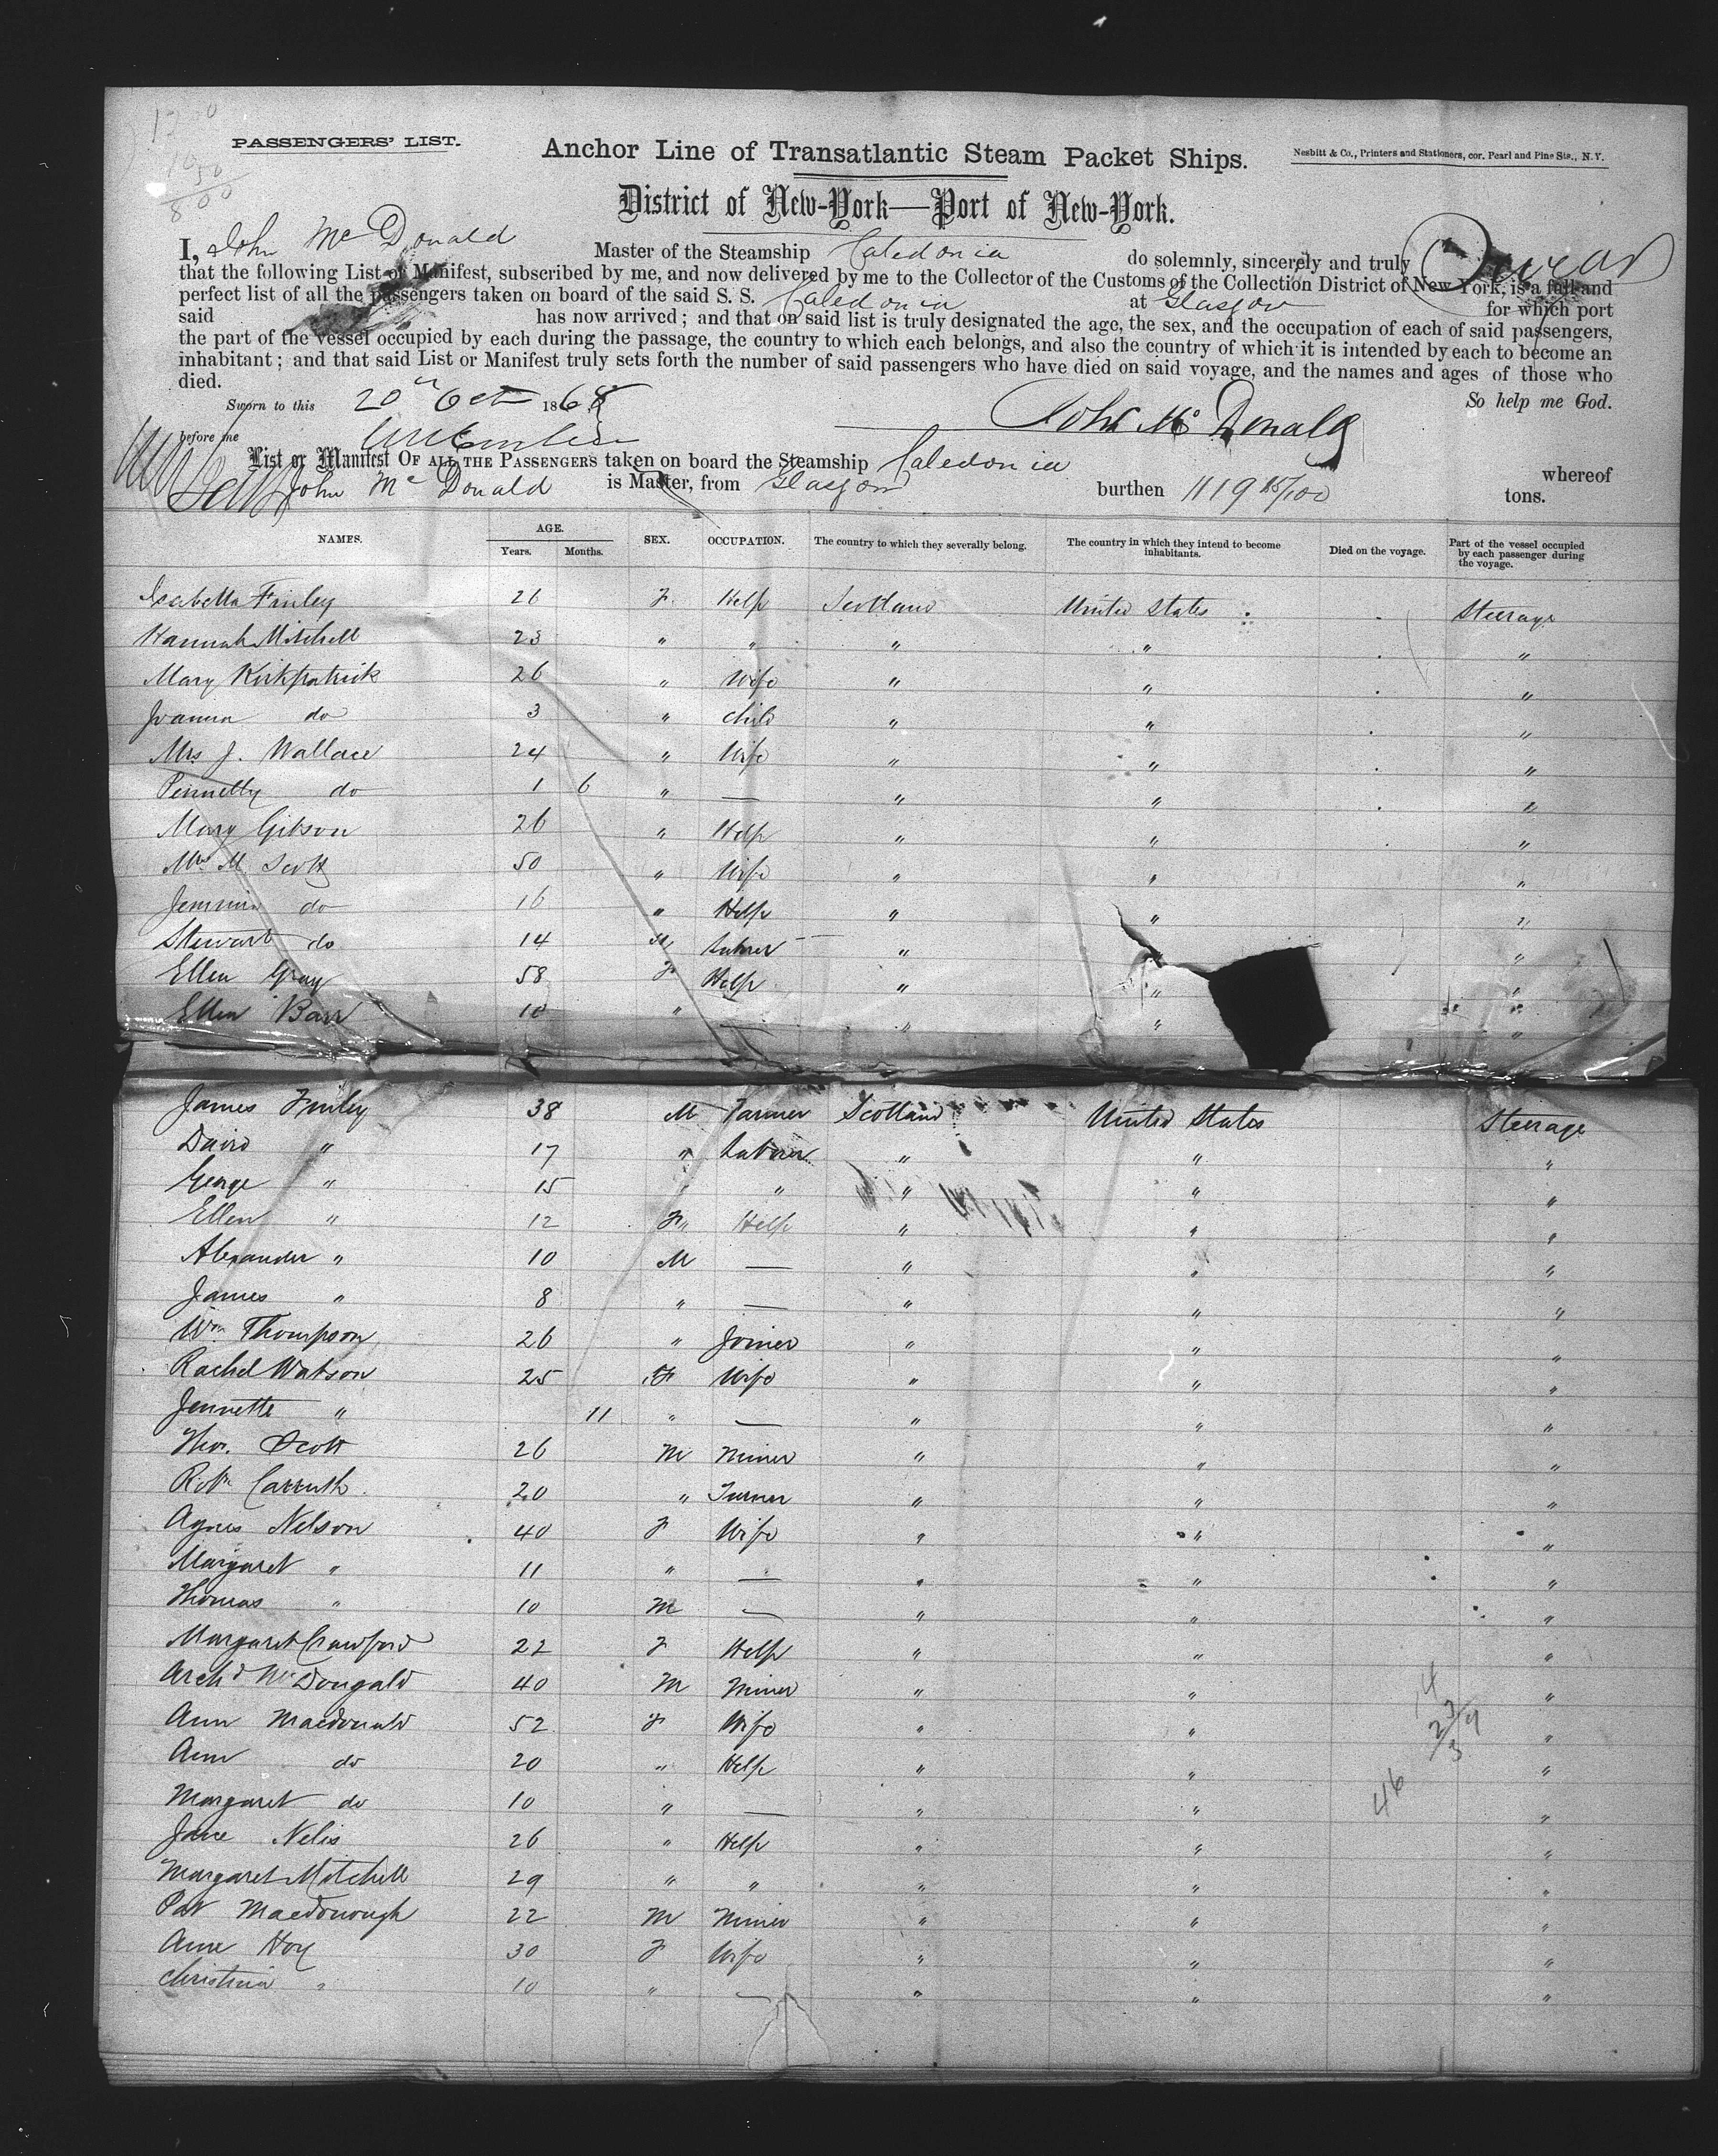 PASSENGERS' LIST.
Anchor Line of Transatlantic Steam Packet Ships.
Nesbitt & Co., Printers and Stationers, cor. Pearl and Pine Sts., N.Y.
District of New-York—Port of New-York.
I, John McDonald Master of the Steamship Caledonia do solemnly, sincerely and truly Swear
that the following List or Manifest, subscribed by me, and now delivered by me to the Collector of the Customs of the Collection District of New York, is a full and
perfect list of all the passengers taken on board of the said S. S. Caledonia at Glasgow for which port
said has now arrived; and that on said list is truly designated the age, the sex, and the occupation of each of said passengers,
the part of the vessel occupied by each during the passage, the country to which each belongs, and also the country of which it is intended by each to become an
inhabitant; and that said List or Manifest truly sets forth the number of said passengers who have died on said voyage, and the names and ages of those who
died.
So help me God.
Sworn to this 20th Oct 1868
John McDonald
before me
List or Manifest OF ALL THE PASSENGERS taken on board the Steamship Caledonia whereof
John McDonald is Master, from Glasgow burthen 1119 15/100 tons.
NAMES. AGE. Years. Months. SEX. OCCUPATION. The country to which they severally belong. The country in which they intend to become inhabitants. Died on the voyage. Part of the vessel occupied by each passenger during the voyage.
Isabella Finley 26 F. Help Scotland United States Steerage
Hannah Mitchell 23 " " " " "
Mary Kirkpatrick 26 " Wife " " "
Joanna do 3 " Child " " "
Mrs J. Wallace 24 " Wife " " "
do 1 6 " — " " "
Mary Gibson 26 " Help " " "
Mrs M. Scott 50 " Wife " " "
Jemima do 16 " Help " " "
Stewart do 14 M Labrer " " "
Ellen Gray 58 F Help " " "
Ellen Barr 10 " — " " "
James Finley 38 M Farmer Scotland United States Steerage
David " 17 " Labrer " " "
George " 15 " " " " "
Ellen " 12 F Help " " "
Alexander " 10 M — " " "
James " 8 " — " " "
Wm Thompson 26 " Joiner " " "
Rachel Watson 25 F Wife " " "
Jennette " 11 " — " " "
Thos. Scott 26 M Miner " " "
Robt Carruth 20 " Turner " " "
Agnes Nelson 40 F Wife " " "
Margaret " 11 " — " " "
Thomas " 10 M — " " "
Margaret Crawford 22 F Help " " "
Archd McDougald 40 M Miner " " "
Ann Macdonald 52 F Wife " " "
Ann do 20 " Help " " "
Margaret do 10 " — " " "
Jane Nelis 26 " Help " " "
Margaret Mitchell 29 " " " " "
Pat Macdonough 22 M Miner " " "
Ann Hoy 30 F Wife " " "
Christina " 10 " — " " "
46